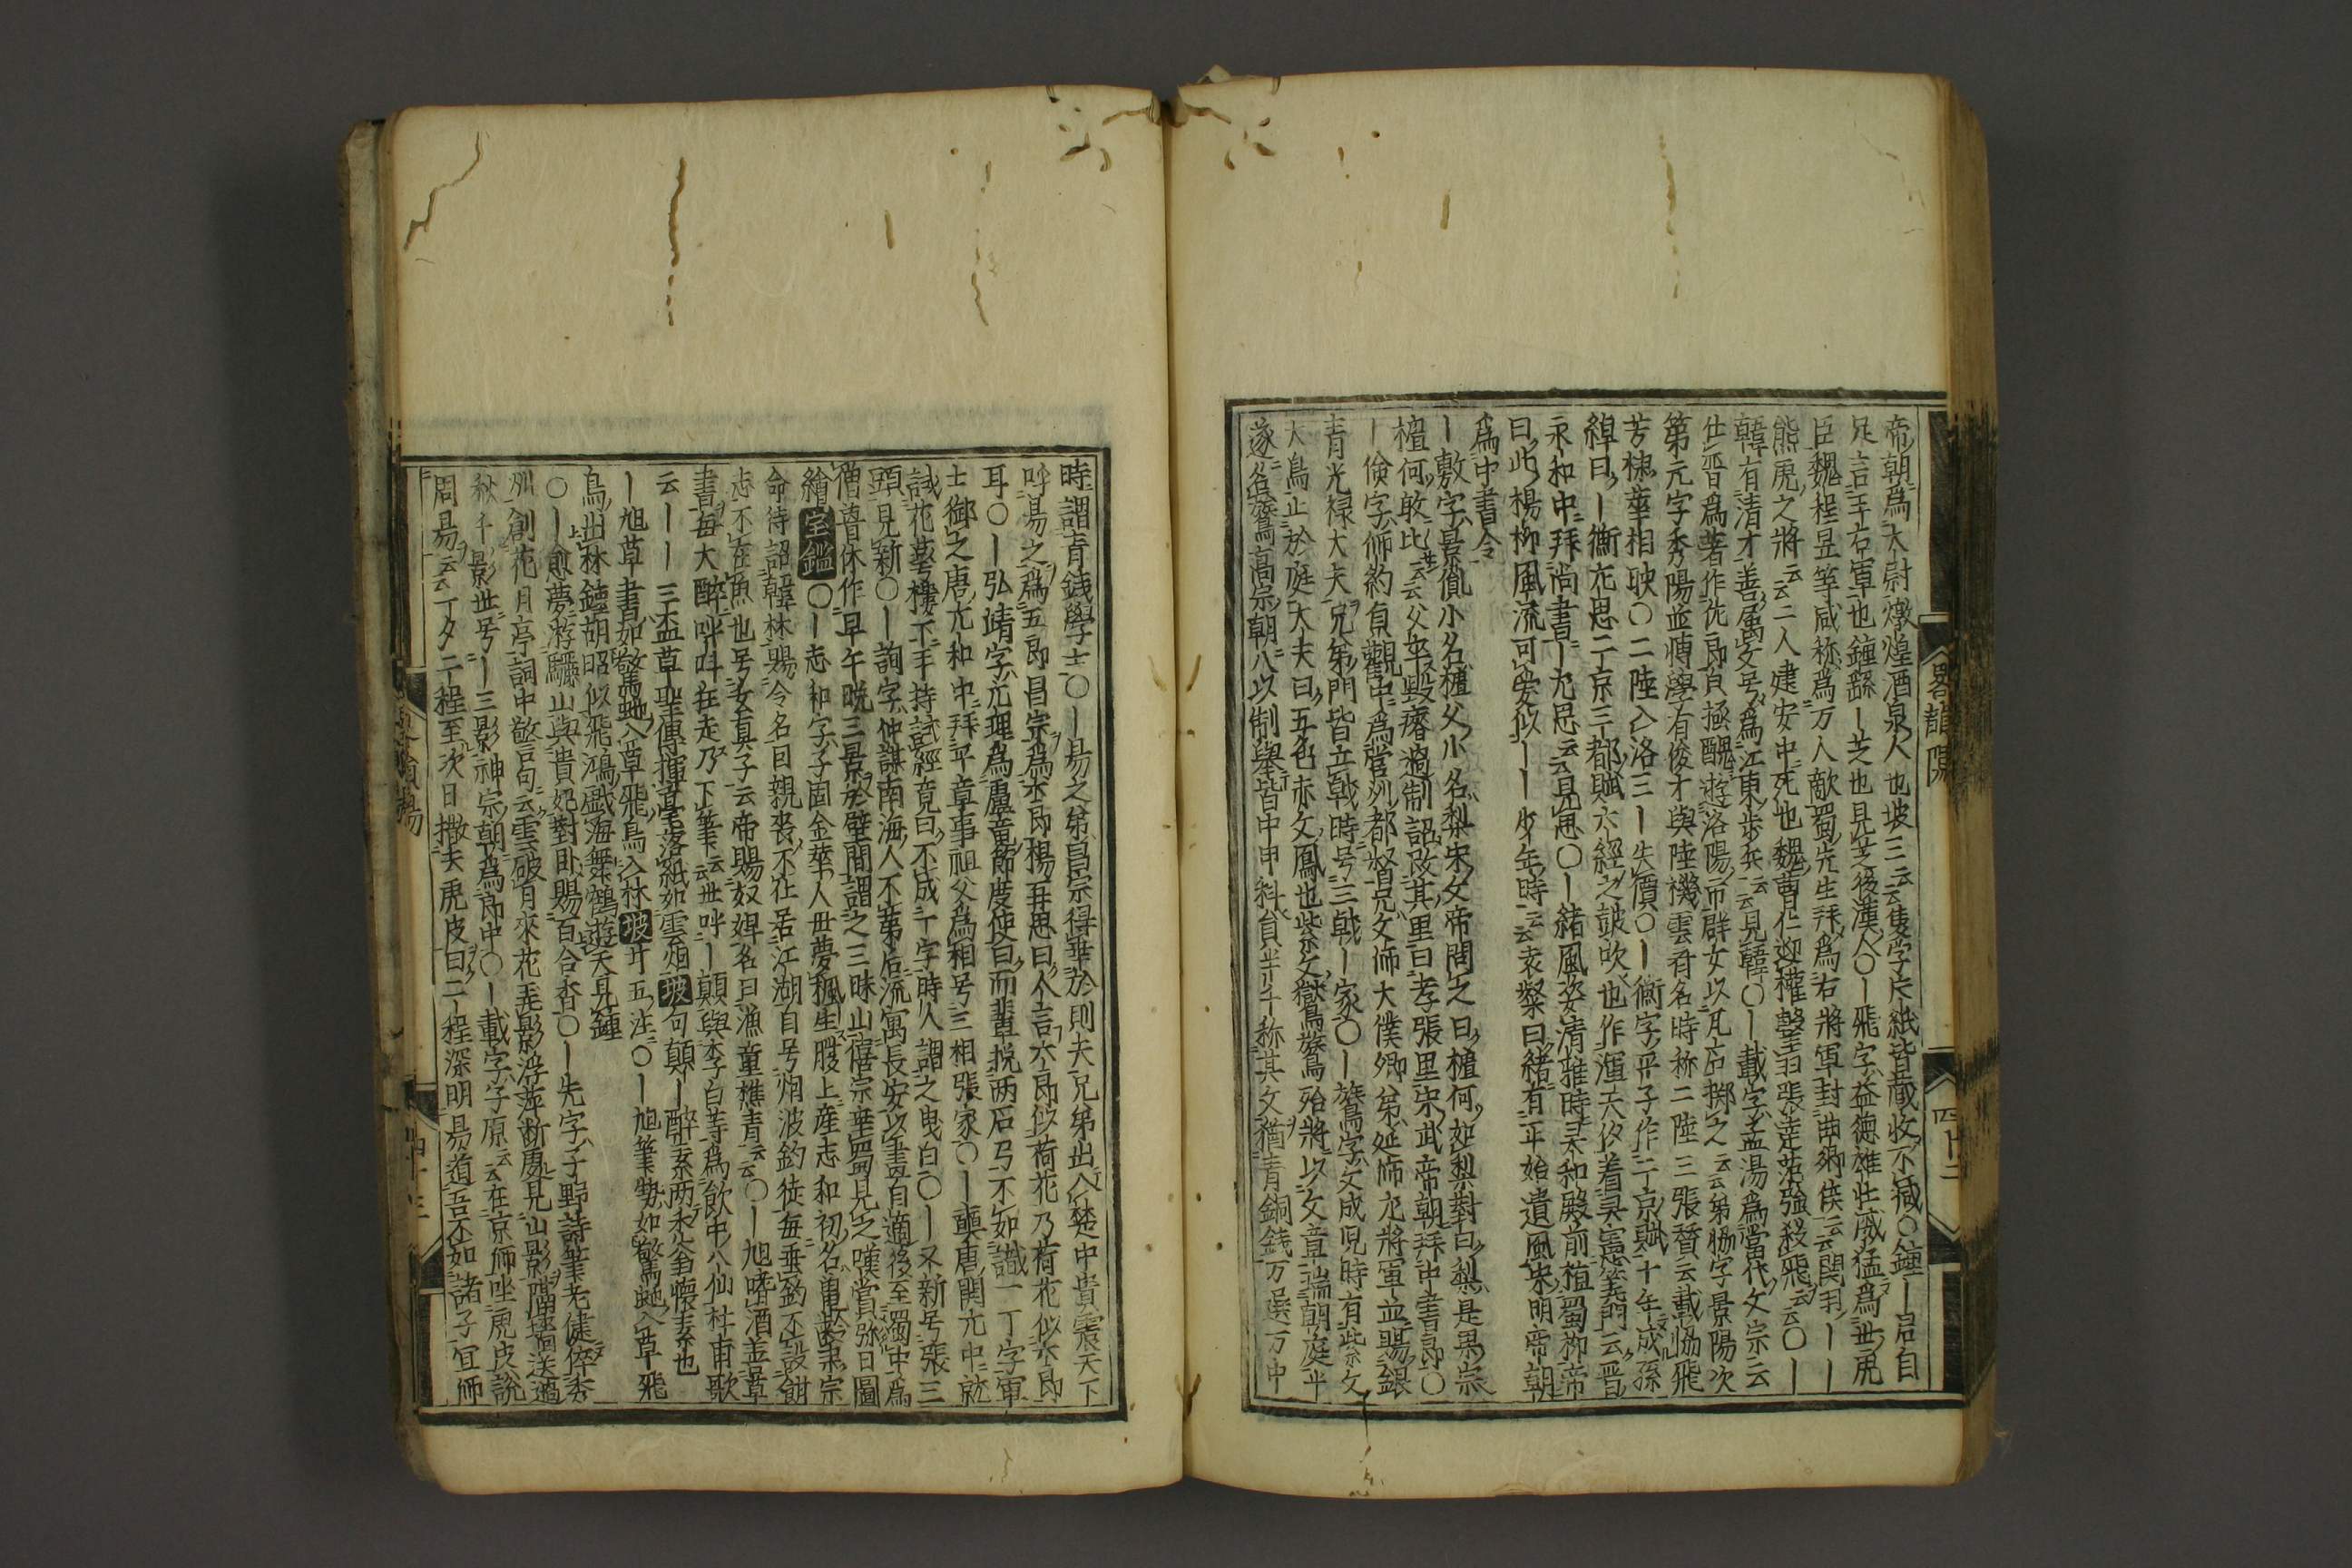 帝朝爲大尉燉煌酒泉人也坡三云隻字片紙皆藏收不〇鍾ー〇自
足言王右軍也鍾繇ー芝也見芝後漢人〇ー飛字益德雄壯威猛爲世虎
臣魏程昱等咸称爲万人敵蜀先生拜爲右將軍封西鄉侯云云関羽ーー
熊虎之將云云二人建安中死也魏曹仁迎權〇〇張達范強殺飛云云〇ー
韓有清才善属文号爲江東步兵云云見韓〇ー載字孟湯爲當代文宗云
仕晋爲著作佐郎皃極醜遊洛陽市群女以瓦石擲之云云第協字景陽次
第元字秀陽並博學有俊才與陸機雲有名時称二陸三張賛云載協飛
芳棣華相映〇二陸入洛三ー失價〇ー衡字平子作二京賦十年成孫
綽曰ー衡〇思二京三都賦六經之鼓吹也作渾天〇着灵憲筭門云晋
永和中拜尚書ー〇思云云見〇〇ー緒風姿清雅時〇和殿前植蜀柳帝
曰此楊柳風流可愛似ーー少年時云云袁粲曰緒有正始遺風宋明帝朝
爲中書令
ー敷字景胤小名樝父小名梨宋文帝問之曰樝何如梨對曰梨是果宗
樝何敢比云云父卒毀瘠過制詔改其里曰孝張里宋武帝朝拜中書郎〇
ー儉字師約貞觀中爲營州都督兄文師大僕卿弟延師左將軍並賜銀
青光禄大夫兄弟門皆立戟時号三戟ー家〇ー鷟字文成兒時有紫文
大鳥止於庭大夫曰五色赤文鳳也紫文鸑鷟殆將以文章瑞朝庭乎
遂名鷟高宗朝八以制舉皆中甲科員半千称其文猶青銅錢万選万中
畧韻陽
四十二
時謂青錢學士〇ー昜之弟昌宗得幸於則天兄弟出入禁中貴震天下
呼昜之爲五郎昌宗爲六郎楊再思曰人言六郎似荷花乃荷花似六郎
耳〇ー弘靖字元理爲盧童節度使曰而輩挽两石弓不如識一丁字軍
士御之唐元和中拜平章事祖父爲相号三相張家〇ー〇唐開元中就
試花萼樓下手持試經竟日不成一字時人謂之曳白〇ー又新号張三
頭見新〇ー詢字仲謀南海人不第后流寓長安以書自適後至濁中爲
僧普休作早午晩三景於壁間謂之三昧山僖宗幸蜀見之嘆賞弥日圖
繪宝鑑〇ー志和字子固金華人母夢楓生腹上産志和初名〇〇肃宗
命待詔韓林賜令名日親喪不仕居江湖自号烟波釣徒每垂釣不設餌
志不在魚也号玄真子云帝賜奴婢名曰漁童樵青云云〇ー旭嗜酒善草
書每大醉呼叫狂走乃下筆云云世呼ー顛與李白等爲飲中八仙杜甫歌
云ーー三盃草聖傳揮毫落紙如雲烟坡句顛ー醉素两秃翁懷素也
ー旭草書如驚蛇入草飛鳥入林坡廿五注〇ー旭筆勢如驚蛇入草飛
鳥出林鍾胡昭似飛鴻戯海舞鶴遊天見鍾
〇ー愈夢游驪山與貴妃對臥賜百合香〇ー先字子野詩筆老健倅秀
州創花月亭詞中〇言句云雲破月來花弄影浮萍断處見山影隔墻送過
秋千影世号ー三影神宗朝爲郎中〇ー載字子原云在京師坐虎皮説
周昜云云一夕二程至次日撤去虎皮曰二ー程深明昜道吾不如諸子宜師